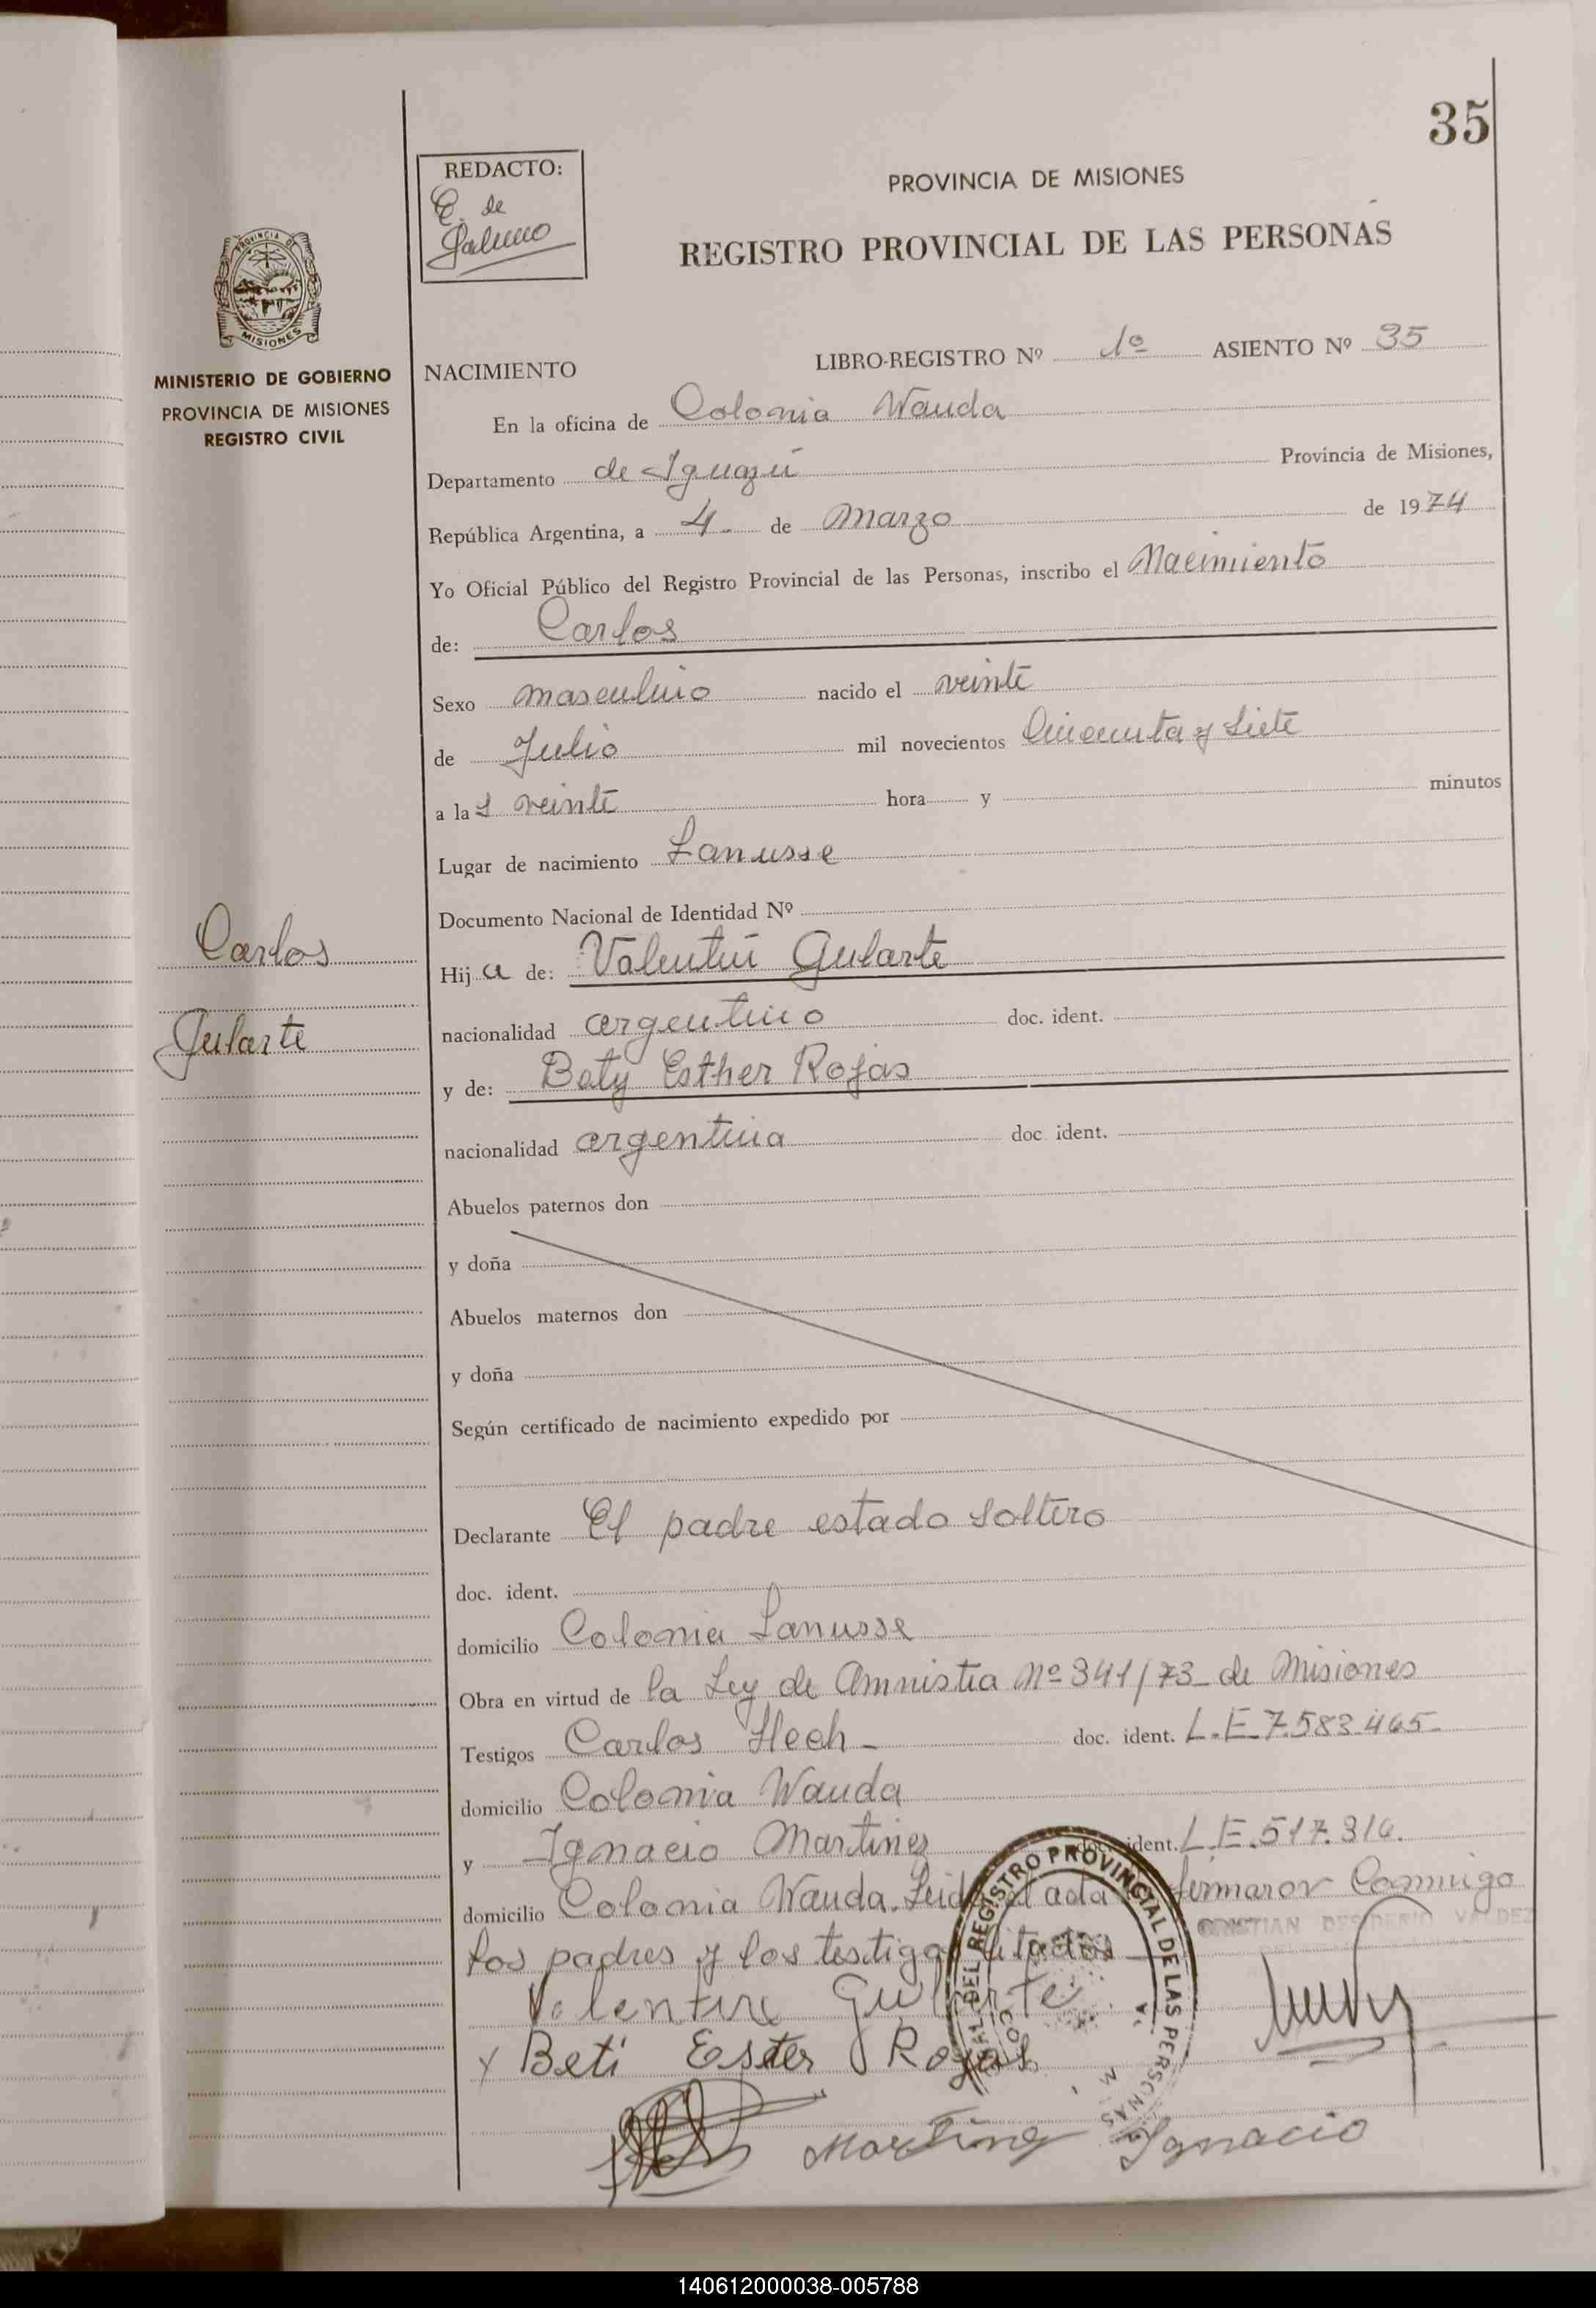 35
REDACTO:
E. de
PROVINCIA DE MISIONES
REGISTRO PROVINCIAL DE LAS PERSONAS
PROVINCIA DE
MISIONES
MINISTERIO DE GOBIERNO
PROVINCIA DE MISIONES
REGISTRO CIVIL
NACIMIENTO LIBRO-REGISTRO Nº 1º ASIENTO Nº 35
En la oficina de Colonia Wanda
Departamento de Iguazú Provincia de Misiones,
República Argentina, a 4 de Marzo de 1974
Yo Oficial Público del Registro Provincial de las Personas, inscribo el Nacimiento
de: Carlos
Sexo masculino nacido el veinte
de Julio mil novecientos Cincuenta y Siete
a las veinte hora y minutos
Lugar de nacimiento Lanusse
Documento Nacional de Identidad Nº
Carlos
Gularte
Hij a de: Valentin Gularte
nacionalidad argentino doc. ident.
y de: Bety Esther Rojas
nacionalidad argentina doc. ident.
Abuelos paternos don
y doña
Abuelos maternos don
y doña
Según certificado de nacimiento expedido por
Declarante El padre estado soltero
doc. ident.
domicilio Colonia Lanusse
Obra en virtud de la Ley de Amnistia Nº 341/73 de Misiones
Testigos Carlos Hech - doc. ident. L.E 7.583.465-
domicilio Colonia Wanda
y Ignacio Martinez doc. ident. L.E.517.316.
domicilio Colonia Wanda. Leida el acta firmaron Conmigo
los padres y los testigos citados
DEL REGISTRO PROVINCIAL DE LAS PERSONAS
CRISTIAN DESIDERIO VALDEZ
Valentin Gularte
x Beti Ester Rojas
Martinez Ignacio
140612000038-005788